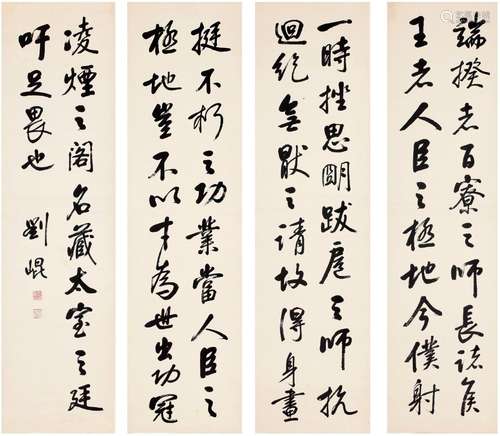 端揆者百寮之師長諸侯
王者人臣之極地今僕射
挺不朽之功業當人臣之
極地豈不以才為世出功冠
一時挫思明跋扈之師抗
迴紇無猒之請故得身畫
凌煙之閣名藏太室之廷
吁足畏也
劉崐